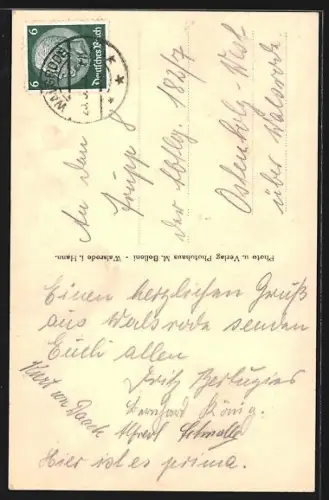 6
Deutsches Reich
6
WALSRODE
An den
Trupp 8
der Abtlg. 182/7
Ostenholz-West
über Walsrode
Photo u. Verlag Photohaus M. Bolleni - Walsrode i. Hann.
Einen herzlichen Gruß
aus Walsrode senden
Euch allen
Fritz Bertugies
Bernhard König.
Alfred
Kurt von
Hier ist es prima.